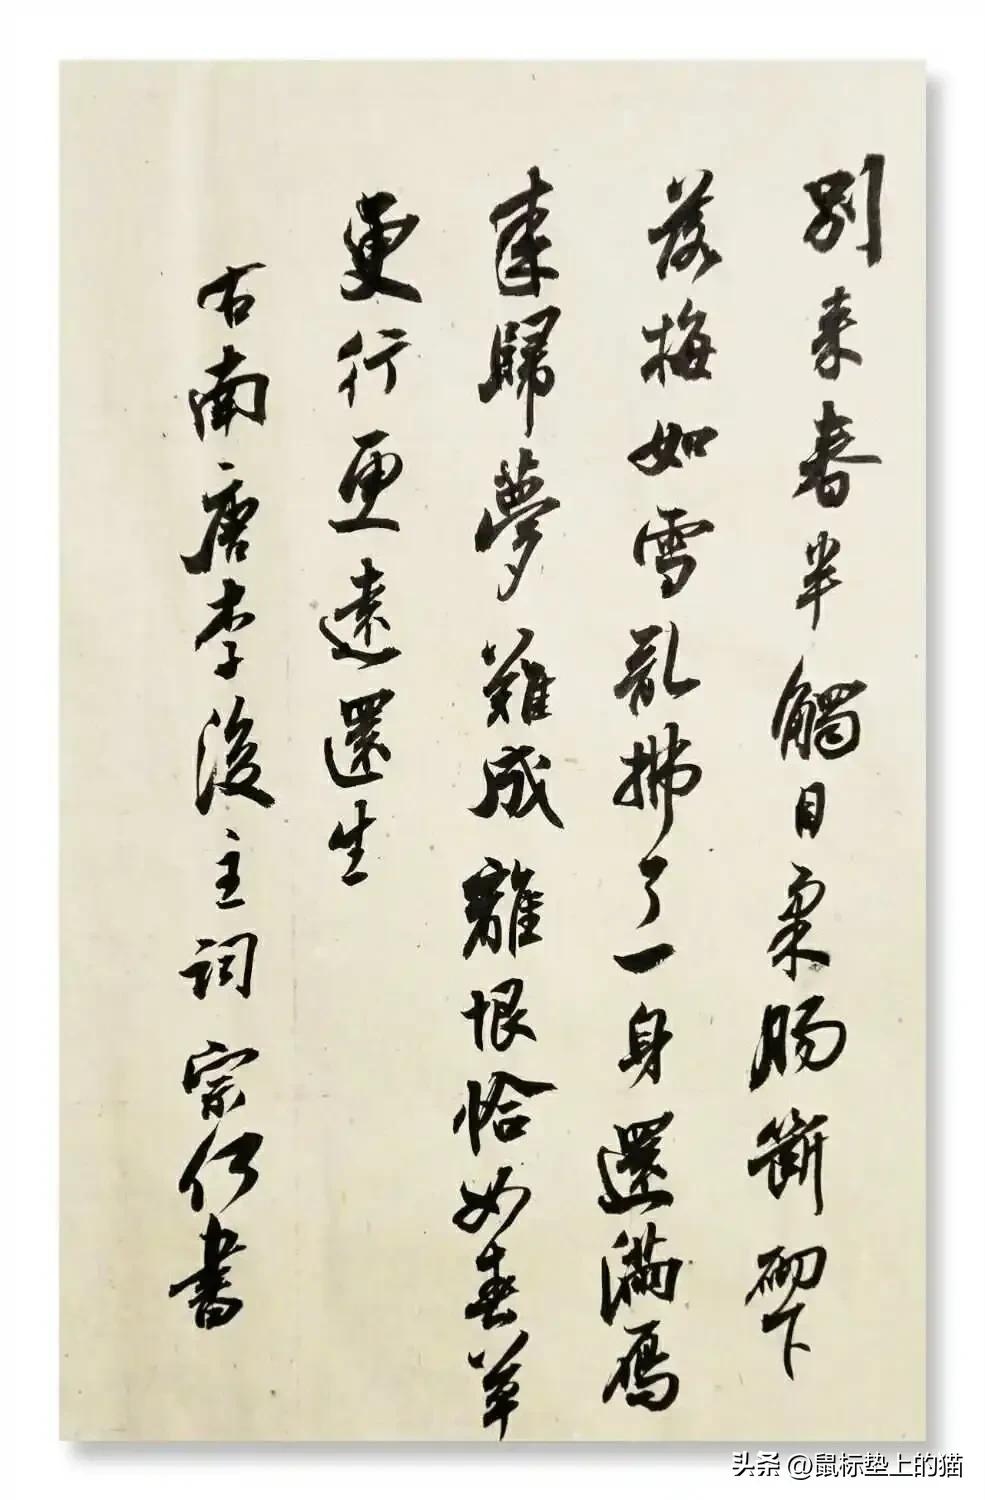 別来春半觸目柔腸斷砌下
落梅如雪乱拂了一身還滿鴈
来歸夢難成離恨恰如春草
更行更遠還生
右南唐李後主詞 宗書
头条 @鼠标垫上的猫